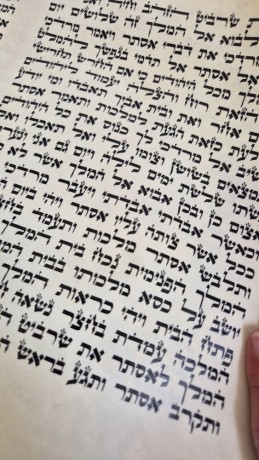 את שרביט הזהב
לבוא אל המלך זה שלושים יום
מרדכי את דברי אסתר ויאמר מרדכי
אל אסתר אל תדמי בנפשך להמלט
מכל היהודים כי אם החרש תחרישי
הזאת רוח והצלה יעמוד ליהודים
ואת ובית אביך תאבדו ומי יודע
כזאת הגעת למלכות ותאמר אסתר
אל מרדכי לך כנוס את כל היהודים
בשושן וצומו עלי ואל תאכלו ואל
שלשת ימים לילה ויום גם אני ונערתי
אצום כן ובכן אבוא אל המלך אשר לא
וכאשר אבדתי אבדתי ויעבר מרדכי
ככל אשר צותה עליו אסתר ויהי ביום
ותלבש אסתר מלכות ותעמד בחצר
המלך הפנימית נכח בית המלך
יושב על כסא מלכותו בבית
פתח הבית ויהי כראות המלך
המלכה עמדת בחצר נשאה
המלך לאסתר את שרביט
ותקרב אסתר ותגע בראש